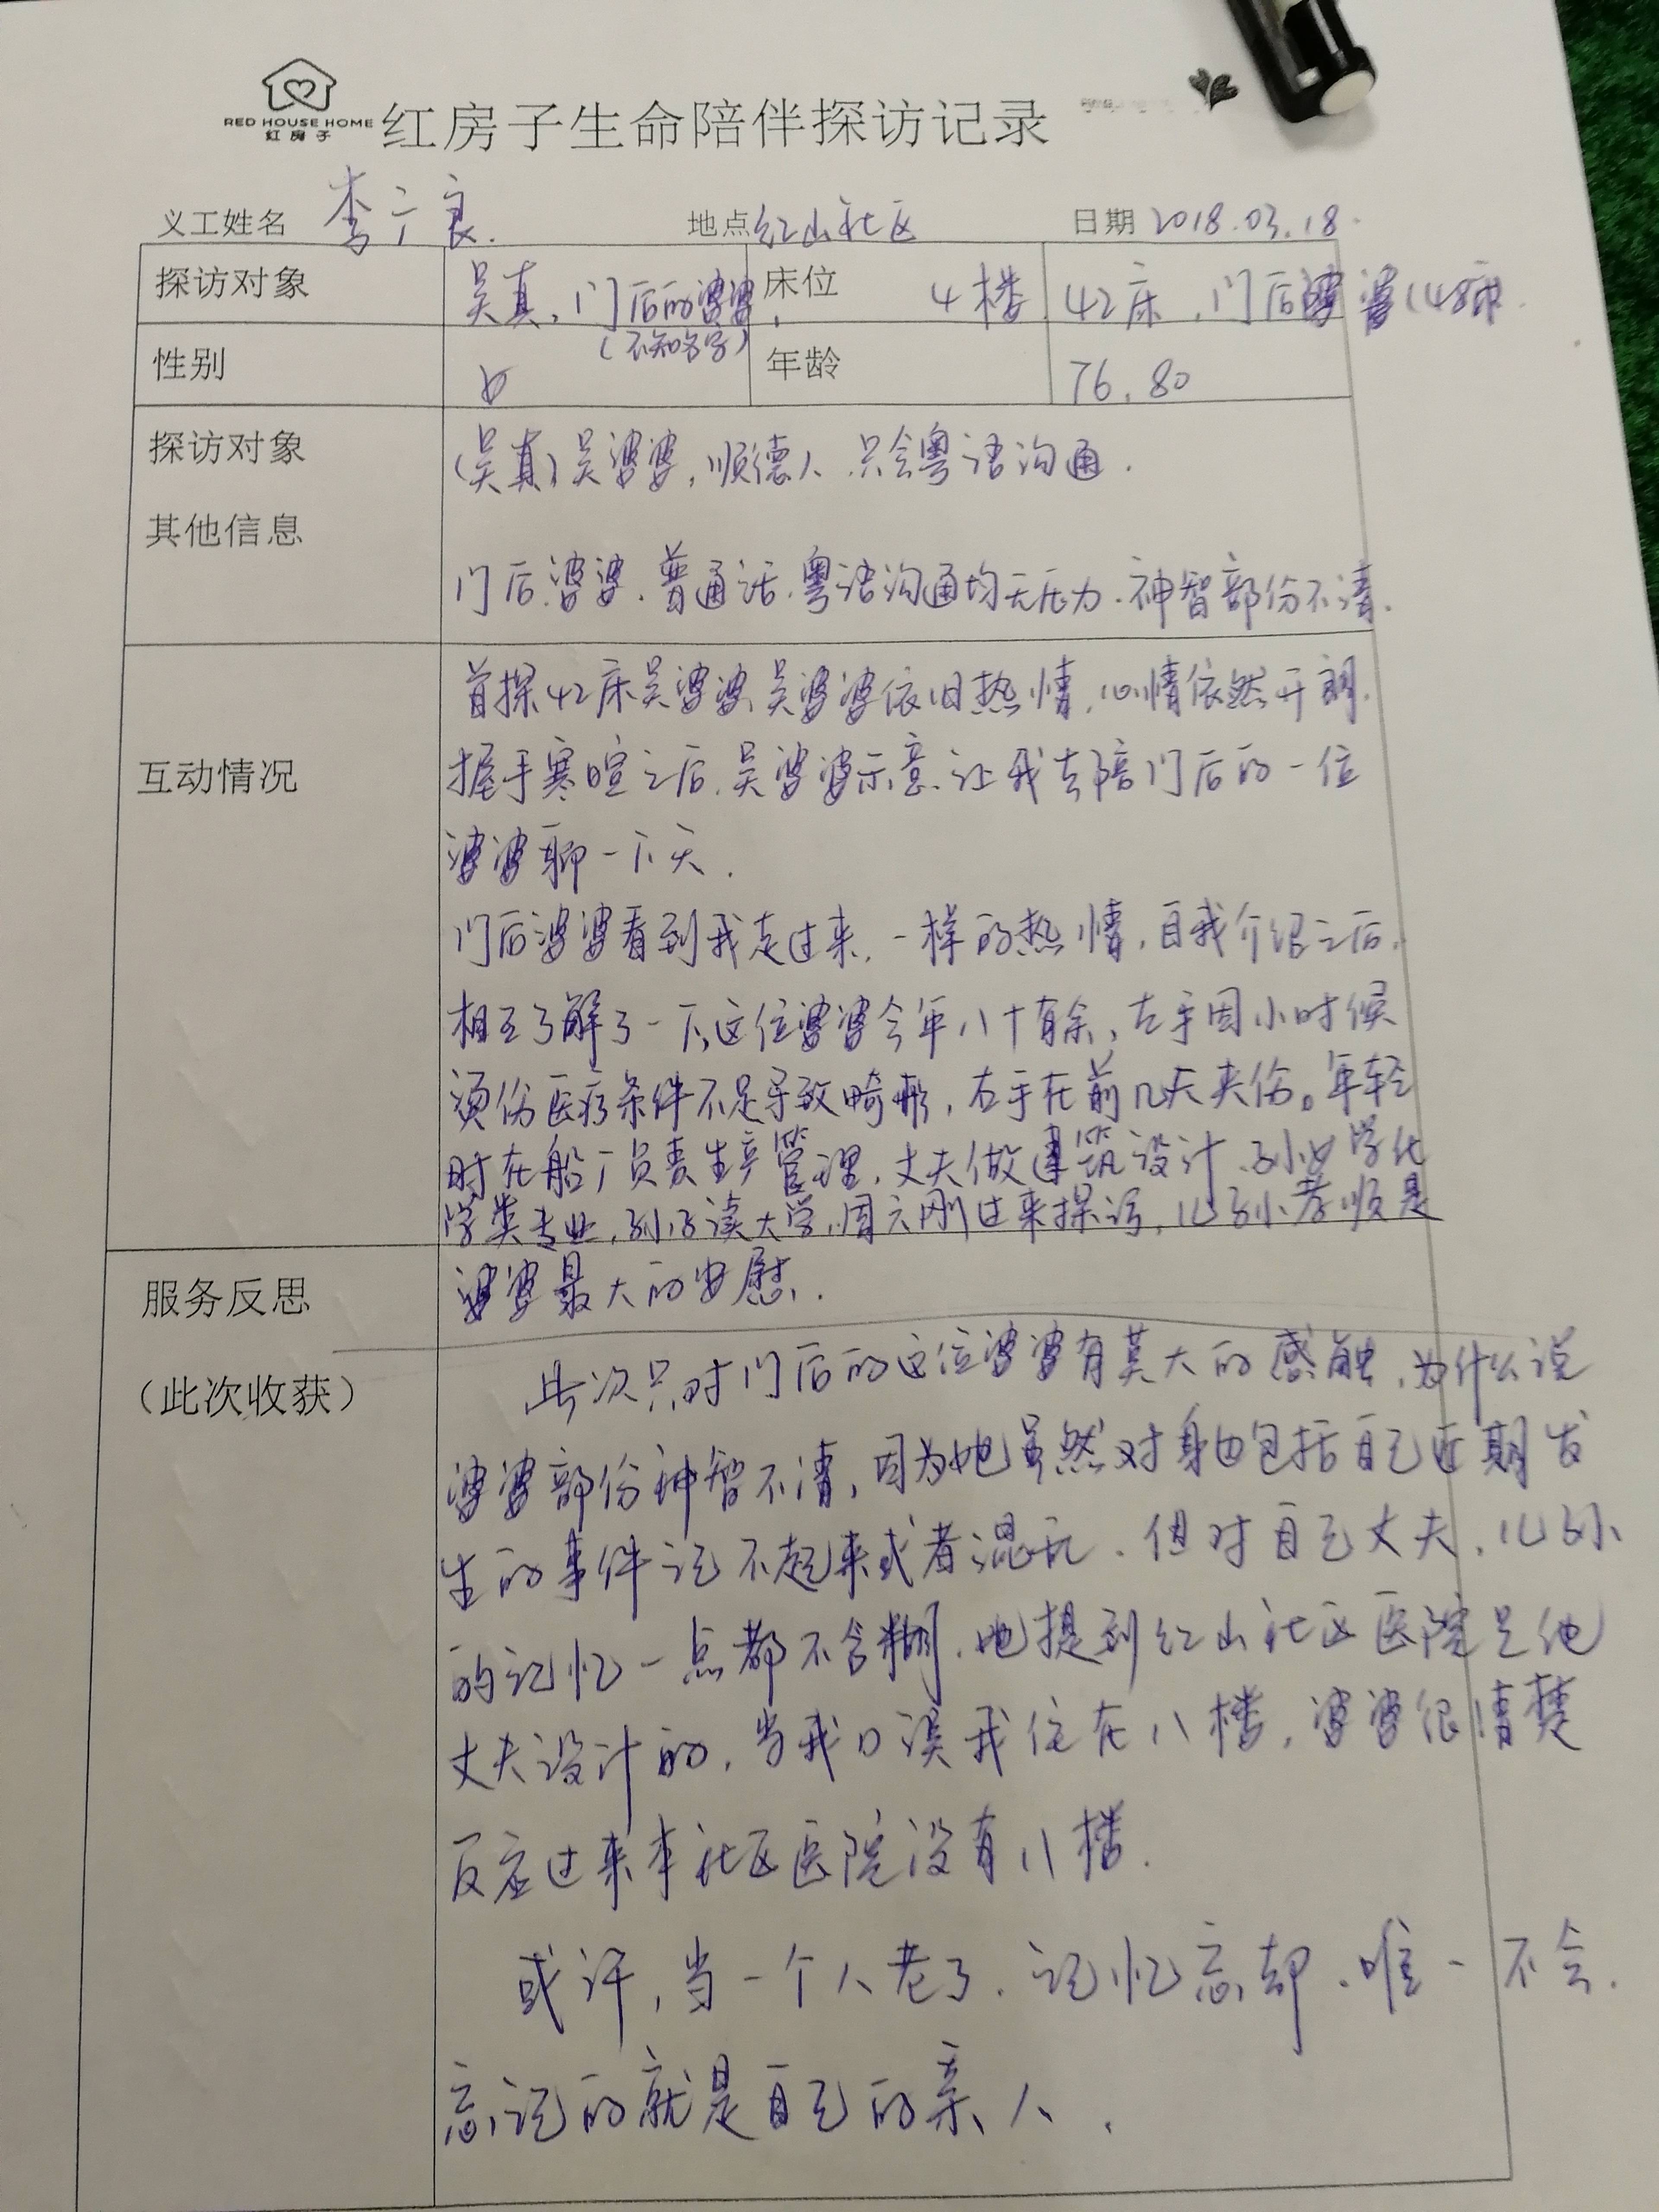 RED HOUSE HOME
红房子
红房子生命陪伴探访记录
义工姓名 李广良. 地点 红山社区 日期 2018.03.18.
探访对象 吴真,门后的婆婆, 床位 4楼 42床,门后婆婆(48床
(不知名字)
性别 女 年龄 76,80
探访对象 (吴真)吴婆婆,顺德人.只会粤语沟通.
其他信息
门后婆婆.普通话.粤语沟通均无压力.神智部份不清.
互动情况
首探42床吴婆婆,吴婆婆依旧热情,心情依然开朗.
握手寒暄之后.吴婆婆示意.让我去陪门后的一位
婆婆聊一下天.
门后婆婆看到我走过来.一样的热情,自我介绍之后.
相互了解了一下,这位婆婆今年八十有余,左手因小时候
烫伤医疗条件不足导致畸形,右手在前几天夹伤。年轻
时在船厂负责生产管理,丈夫做建筑设计.孙女学化
学类专业,孙子读大学,周六刚过来探访,儿孙孝顺是
婆婆最大的安慰.
服务反思
(此次收获)
此次只对门后的这位婆婆有莫大的感触.为什么说
婆婆部份神智不清,因为她虽然对身边包括自己近期发
生的事件记不起来或者混乱.但对自己丈夫.儿孙
的记忆一点都不含糊.她提到红山社区医院是他
丈夫设计的,当我口误我住在八楼,婆婆很清楚
反应过来本社区医院没有八楼.
或许,当一个人老了.记忆忘却.唯一不会.
忘记的就是自己的亲人.